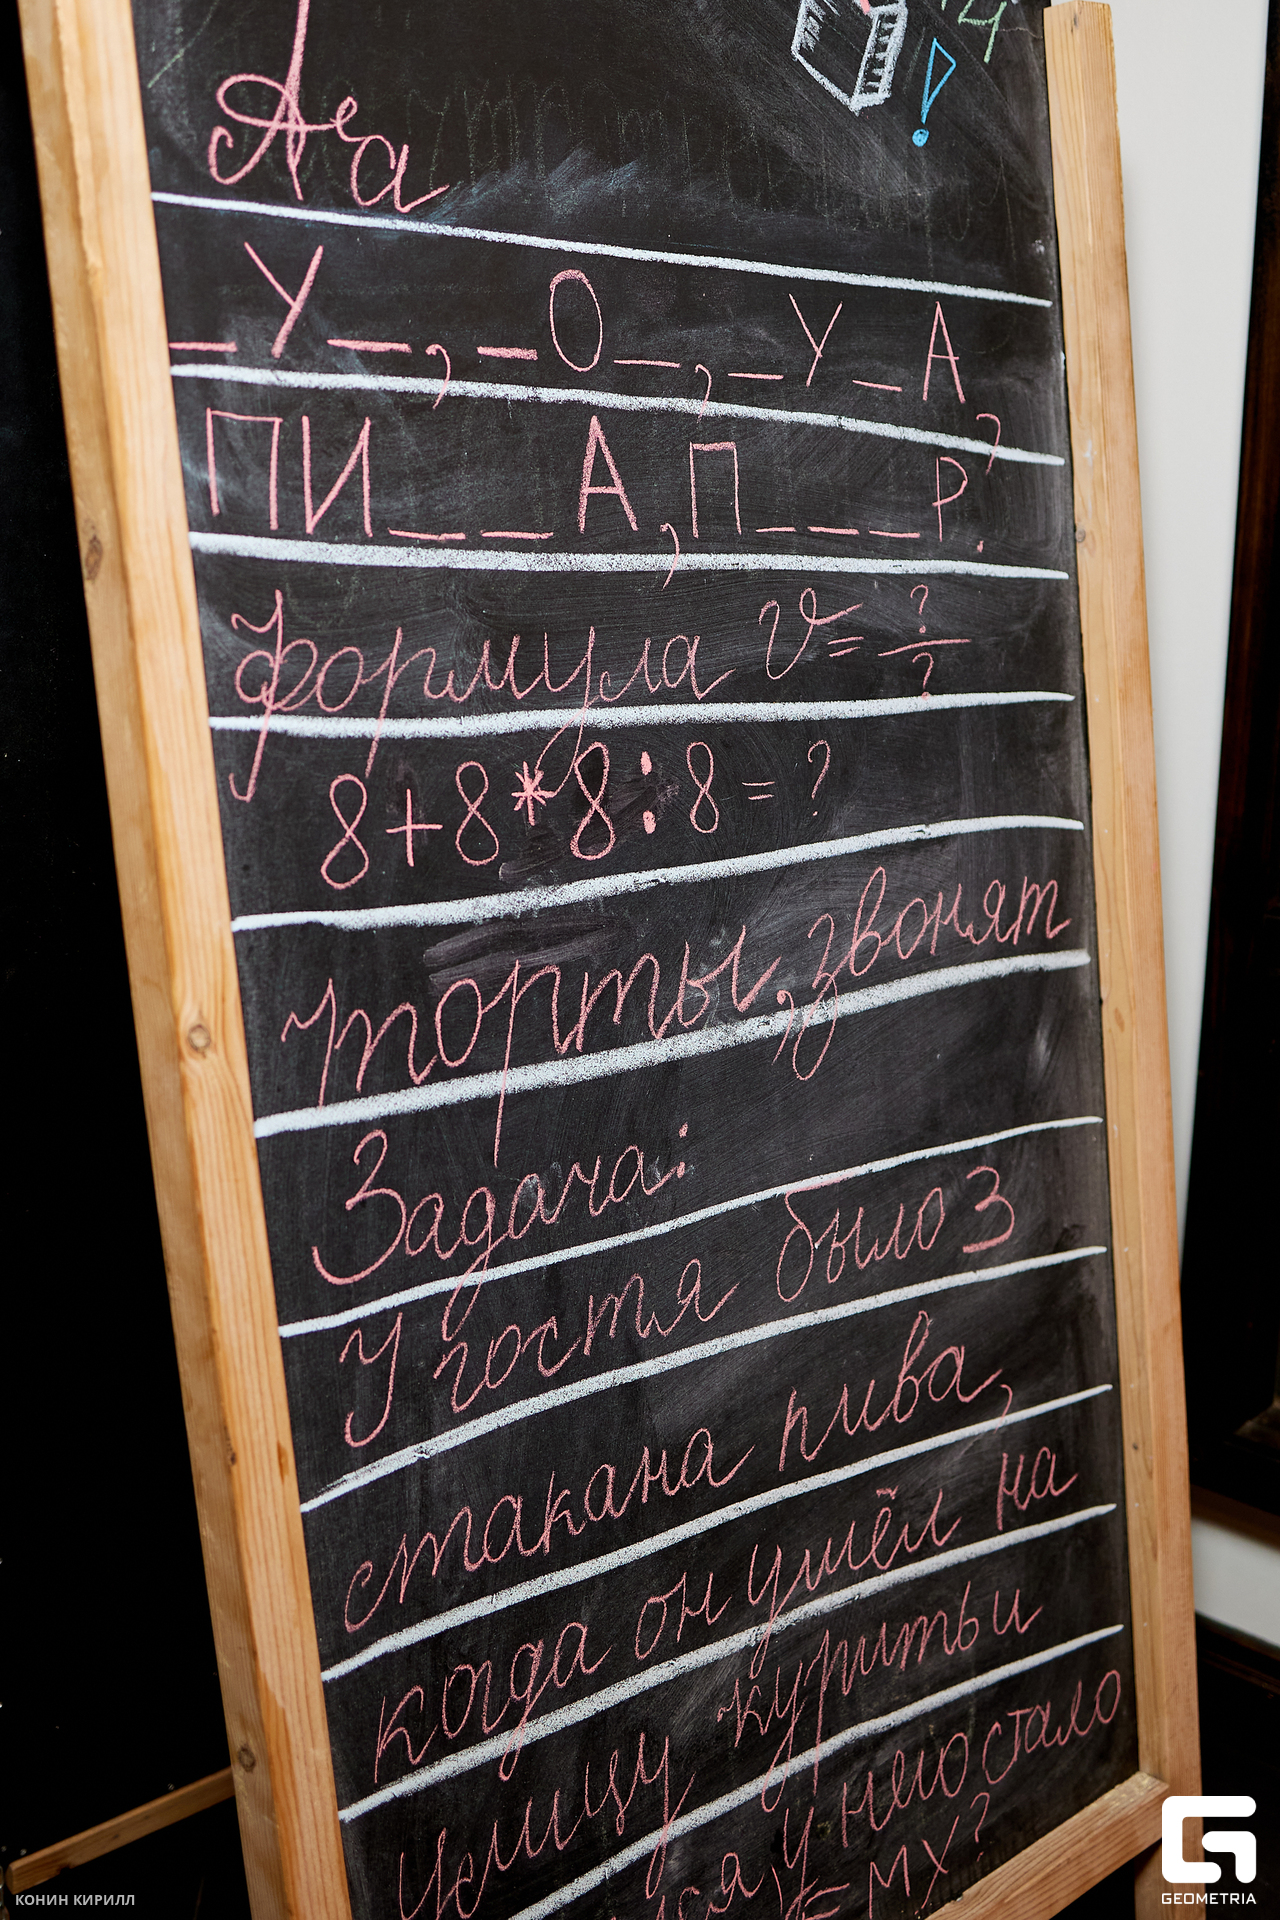 Аа
!
_У_, _О_, _У_А,
ПИ__А, П___Р.
формула v = ?/?
8+8*8:8=?
торты, звонят
Задача:
У гостя было 3
стакана пива,
когда он ушёл на
улицу курить и
у него стало
= МХ?
КОНИН КИРИЛЛ
GEOMETRIA